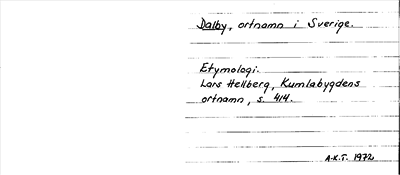 Dalby, ortnamn i Sverige.
Etymologi.
Lars Hellberg, Kumlabygdens
ortnamn, s. 414.
A.K.T. 1972